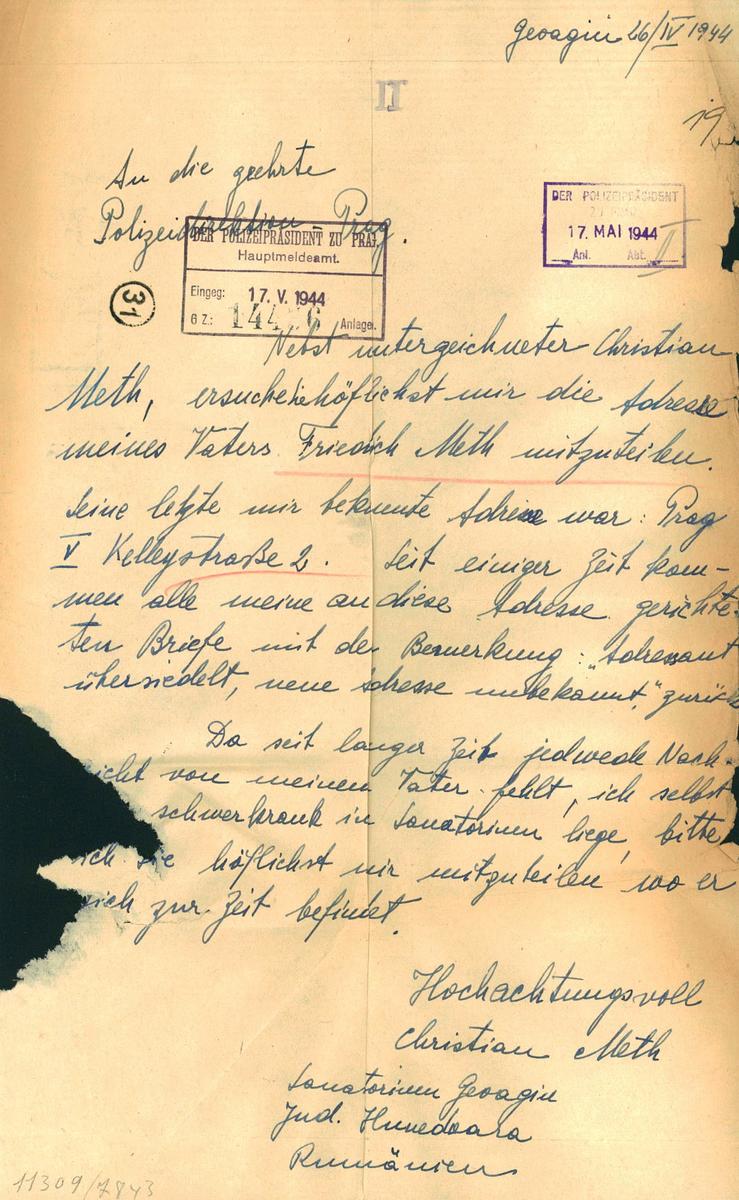 Geoagiu 26/IV 1944
II
19
An die geehrte
Polizeidirektion - Prag.
DER POLIZEIPRÄSIDENT
17. MAI 1944
Anl. Abt. II
DER POLIZEIPRÄSIDENT ZU PRAG
Hauptmeldeamt.
Eingeg: 17. V. 1944
G Z.: Anlage:
31
Nebst unterzeichneter Christian
Meth, ersuche höflichst mir die Adresse
meines Vaters Friedich Meth mitzuteilen.
Seine letzte mir bekannte Adresse war: Prag
V Kelleystraße 2. Seit einiger Zeit kom-
men alle meine an diese Adresse gerichte-
ten Briefe mit der Bemerkung: "Adressant
übersiedelt, neue Adresse unbekannt," zurück
Da seit langer Zeit jedwede Nach-
icht von meinem Vater fehlt, ich selbst
schwerkrank in Sanatorium liege, bitte
ich Sie höflichst mir mitzuteilen wo er
sich zur Zeit befindet.
Hochachtungsvoll
Christian Meth
Sanatorium Geoagiu
Jud. Hunedoara
Rumänien
11309/7843